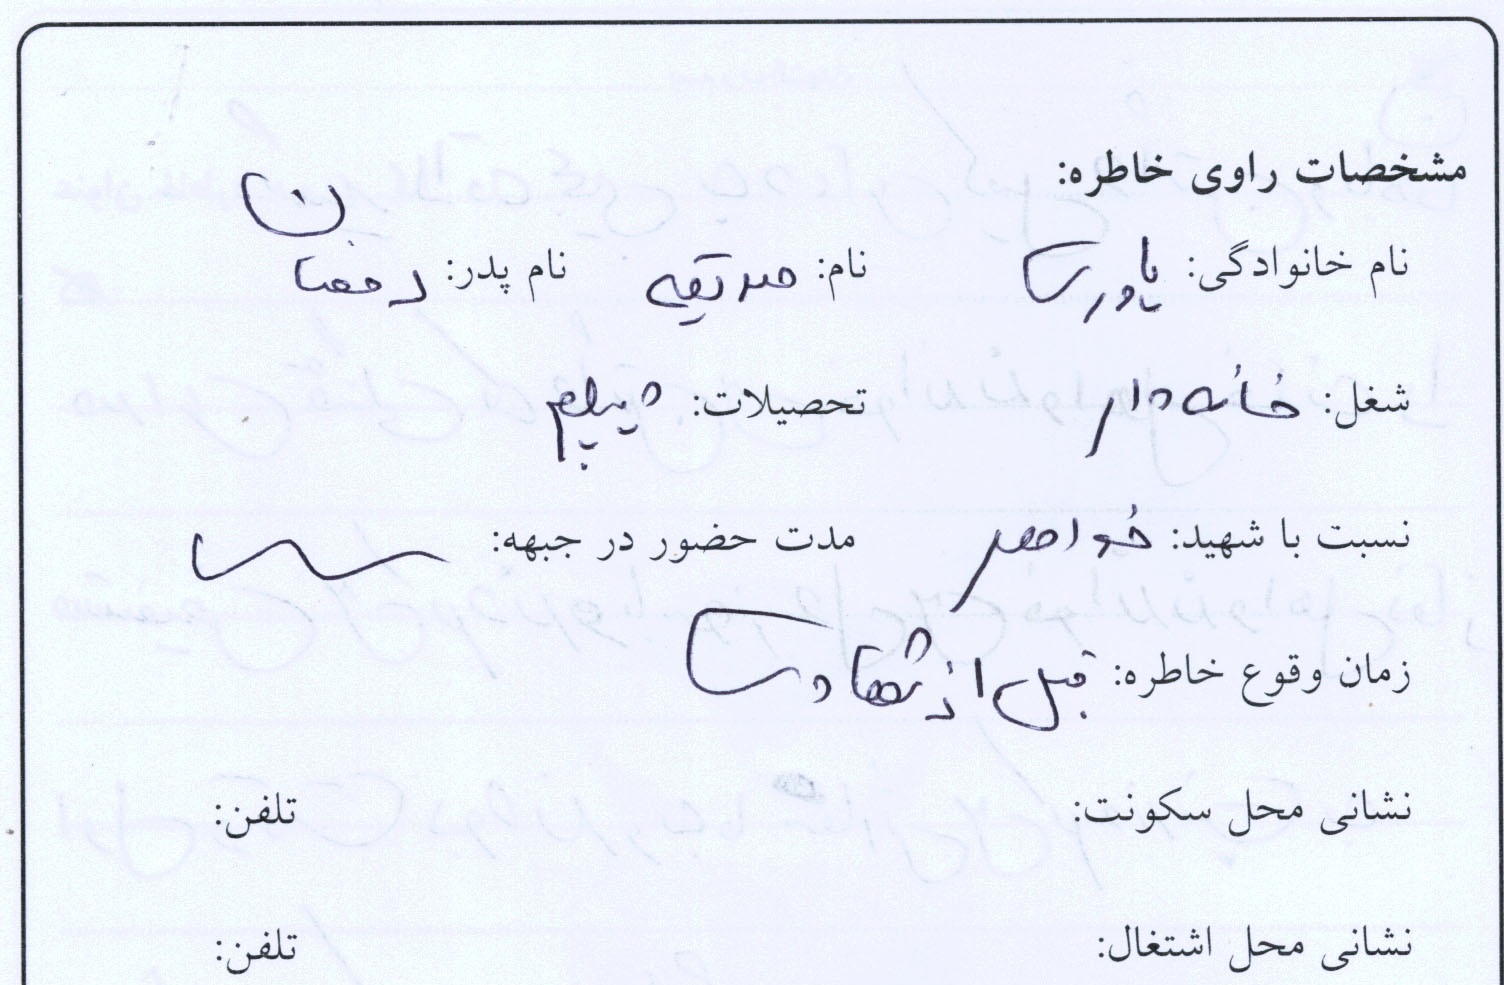 مشخصات راوی خاطره:
نام خانوادگی: یاوری نام: صدیقه نام پدر: رمضان
شغل: خانه دار تحصیلات: دیپلم
نسبت با شهید: خواهر مدت حضور در جبهه:
زمان وقوع خاطره: قبل از شهادت
نشانی محل سکونت: تلفن:
نشانی محل اشتغال: تلفن: